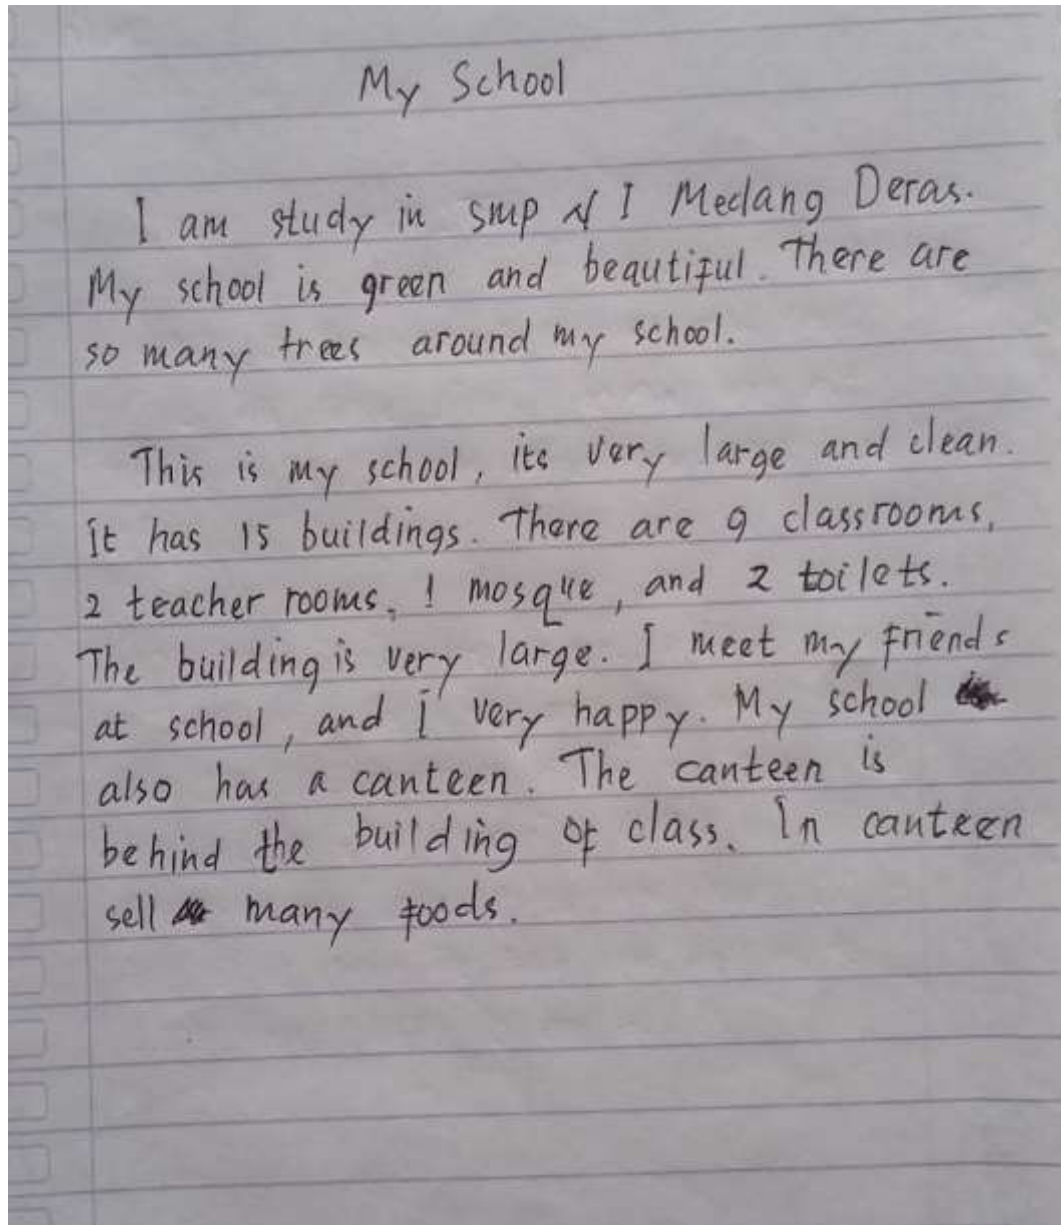 My School
I am study in smp N I Medang Deras.
My school is green and beautiful. There are
so many trees around my school.
This is my school, its very large and clean.
it has 15 buildings. There are 9 classrooms,
2 teacher rooms, 1 mosque, and 2 toilets.
The building is very large. I meet my friends
at school, and i very happy. My school
also has a canteen. The canteen is
behind the building of class. In canteen
sell many foods.